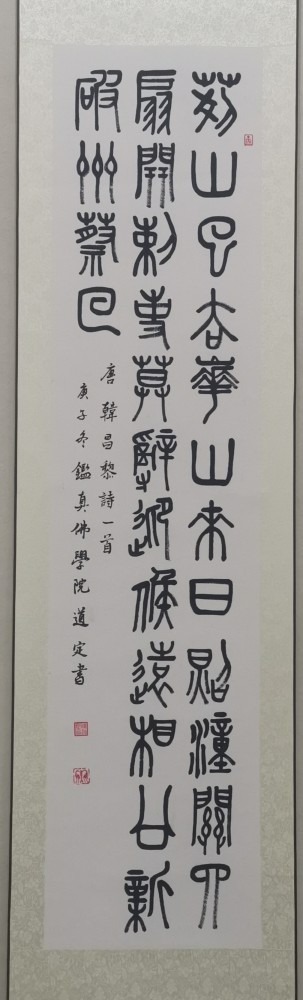 荆山已去華山来日照潼關四
扇開刺史莫辭迎候遠相公新
破州蔡回
唐韓昌黎詩一首
庚子冬鑑真佛學院道定書